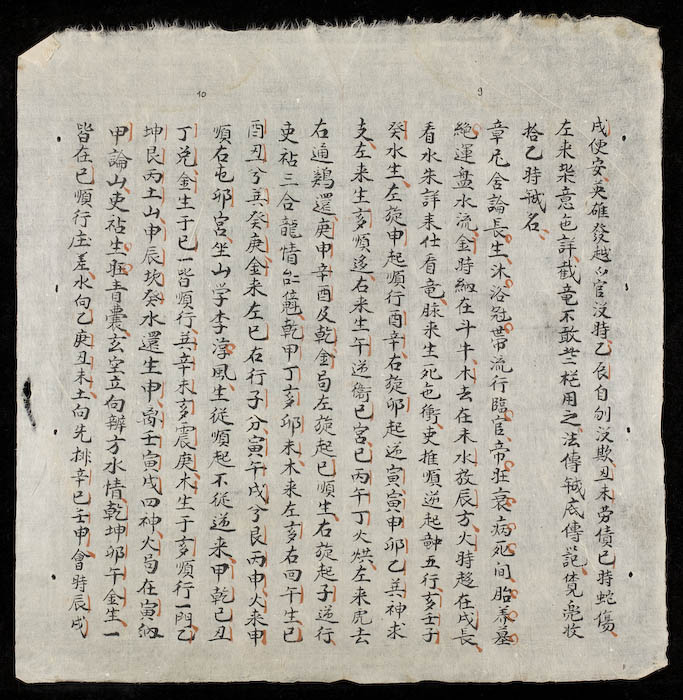 9
10
戌便安央雄發越勾官沒時乙辰自刎沒欺丑未勞債巳時蛇傷
左来意色詳截竜不敢用之法傳底傳
拾乙時名
章舍論長生沐浴冠帶流行臨官帝旺衰病死间胎养墓
絶運盘水流金時納在斗牛木去在未水放辰方火時趍在戌長
看水朱詳来仕看竜脉来生死也衝吏推順逆起五行亥壬子
癸水生左旋申起順行酉辛右旋卯起逆寅寅申卯乙其神求
支左来生亥順右来生午逆衛巳宮巳丙午丁火烘左来虎去
右通鷄還庚申辛酉及乾金局左旋起巳順生右旋起子逆行
吏祜三合龍情乾甲丁亥卯未木来左亥右回午生巳
酉丑兮其癸庚金来左巳右行子分寅午戌兮艮丙申火来申
順右屯卯宮坐山学李淳風生從順起不從逆来甲乾巳丑
丁兑金生于巳一皆順行其辛未亥震庚木生于亥順行一門乙
坤艮丙土山申辰坎癸水還生申离壬寅戌四神火局在寅納
甲論山吏祜生旺青囊玄空立向辨方水情乾坤卯午金生一
皆在巳順行庄差水向乙庚丑未土向先排辛巳壬申會時辰戌